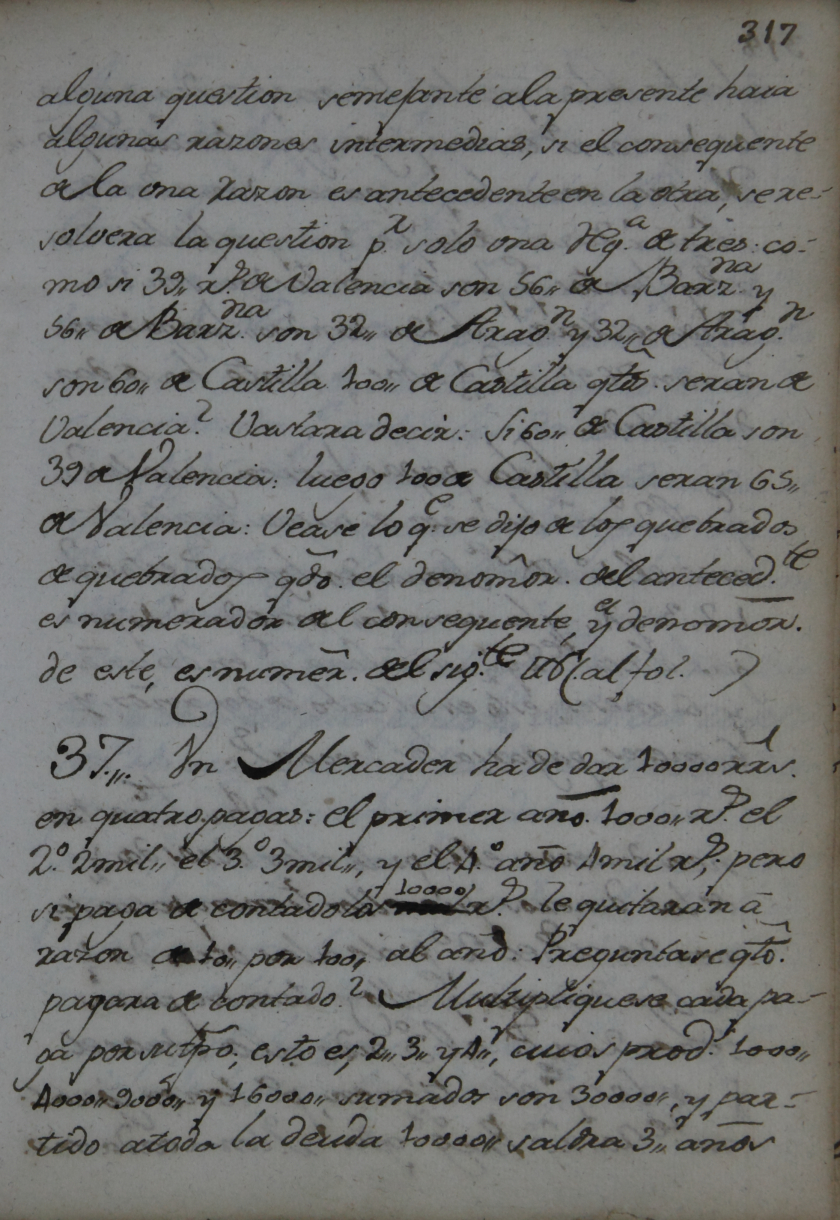 317
alguna question semejante ala presente havia
algunas razones intermedias, si el consequente
de la ona Razon es antecedente en la otra, se re-
solvera la question p.r solo ona Reg.a de tres: co-
mo si 39,, r.s de Valencia son 56,, de Barz.na y
56,, de Barz.na son 32,, de Arag.n y 32,, de Arag.n
son 60,, de Castilla 100,, de Castilla qtos. seran de
Valencia? Vastara decir: Si 60,, de Castilla son
39 de Valencia: luego 100 de Castilla seran 65,,
de Valencia: Vease lo q.e se dijo de los quebrados
de quebrados qdo. el denomor. del anteced.te
es numerador del consequente, y el denomor.
de este, es numer. del sig.te al fol. )
37,,. Un Mercader ha de dar 10000 rrs.
en quatro pagas: el primer año. 1000,, r.s el
2.o 2mil,, el 3.o 3mil,, y el 4.o año 4mil r.s; pero
si paga de contado los 10000 r.s le quitaran à
razon de 10,, por 100,, al año: Preguntase qto.
pagara de contado? Multipliquese cada pa-
ga por su tpo; esto es, 2,, 3,, y 4,, cuios prod.s 1000,,
4000,, 9000,, y 16000,, sumados son 30000,, y par-
tido a toda la deuda 10000,, saldra 3,, años